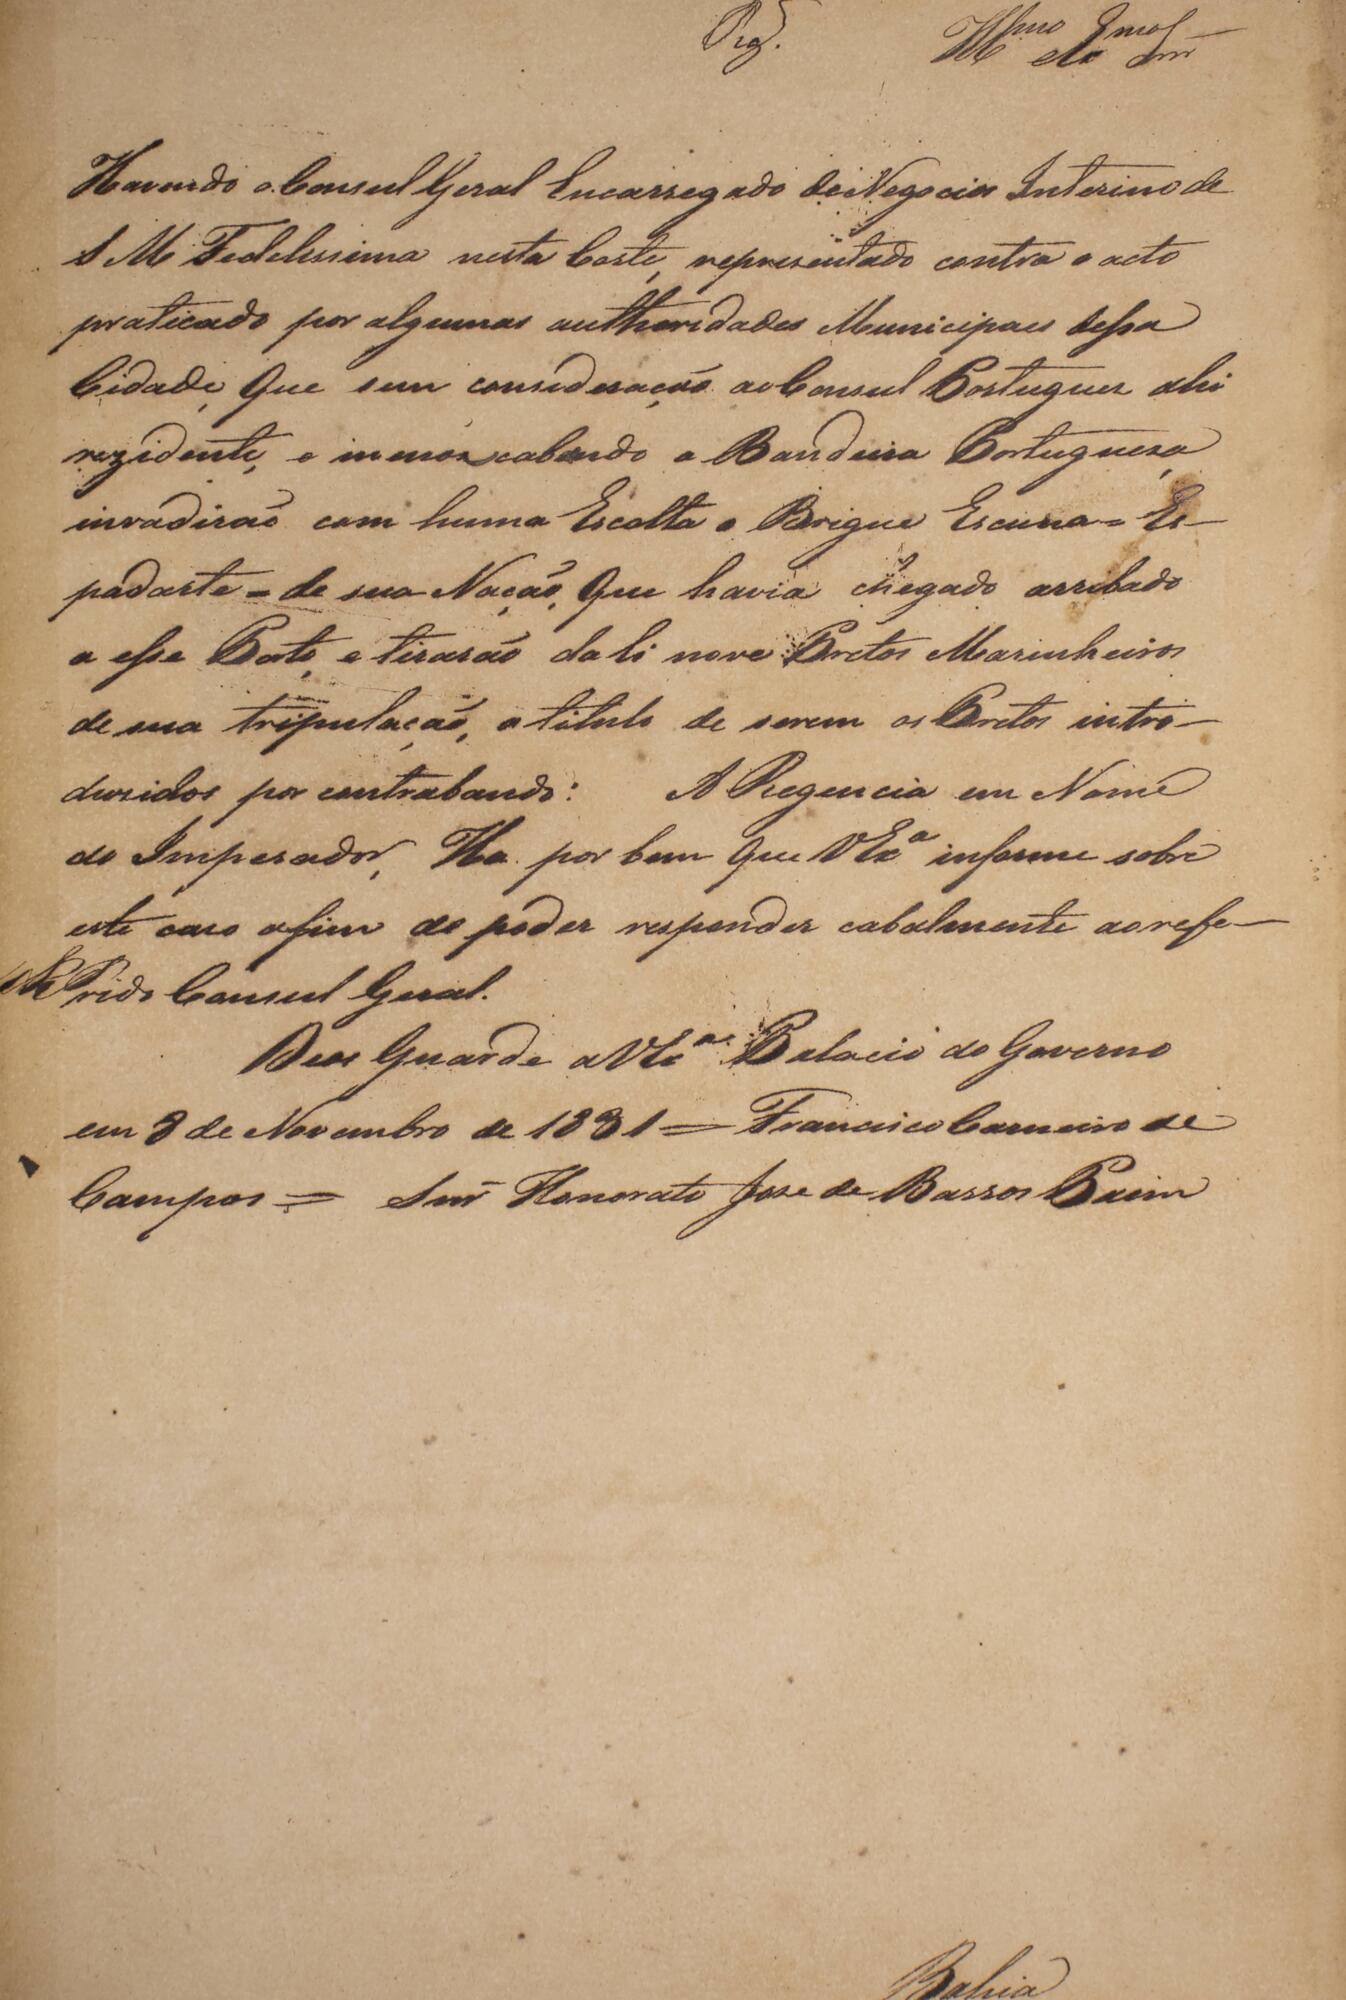 Reg.
Illmo Exmo
Snr
Havendo o Consul Geral Encarregado de Negocios Interino de
S M Fedelissima nesta Corte, representado contra o acto
praticado por algumas authoridades Municipaes dessa
Cidade, Que sem consideração ao Consul Portuguez ahi
rezidente, e menoscabando a Bandeira Portugueza
invadirão com huma Escolta o Brigue Escuna = Es-
padarte = de sua Nação, Que havia chegado arribado
a esse Porto, e tirarão dali nove Pretos Marinheiros
de sua tripulação, a titulo de serem os Pretos intro-
dusidos por contrabando: A Regencia em Nome
do Imperador, Ha por bem Que VExa informe sobre
este caso afim de poder responder cabalmente ao refe-
rido Consul Geral.
Deos Guarde a VExa Palacio do Governo
em 3 de Novembro de 1831 = Francisco Carneiro de
Campos = Snr Honorato Jose de Barros Paim
Bahia